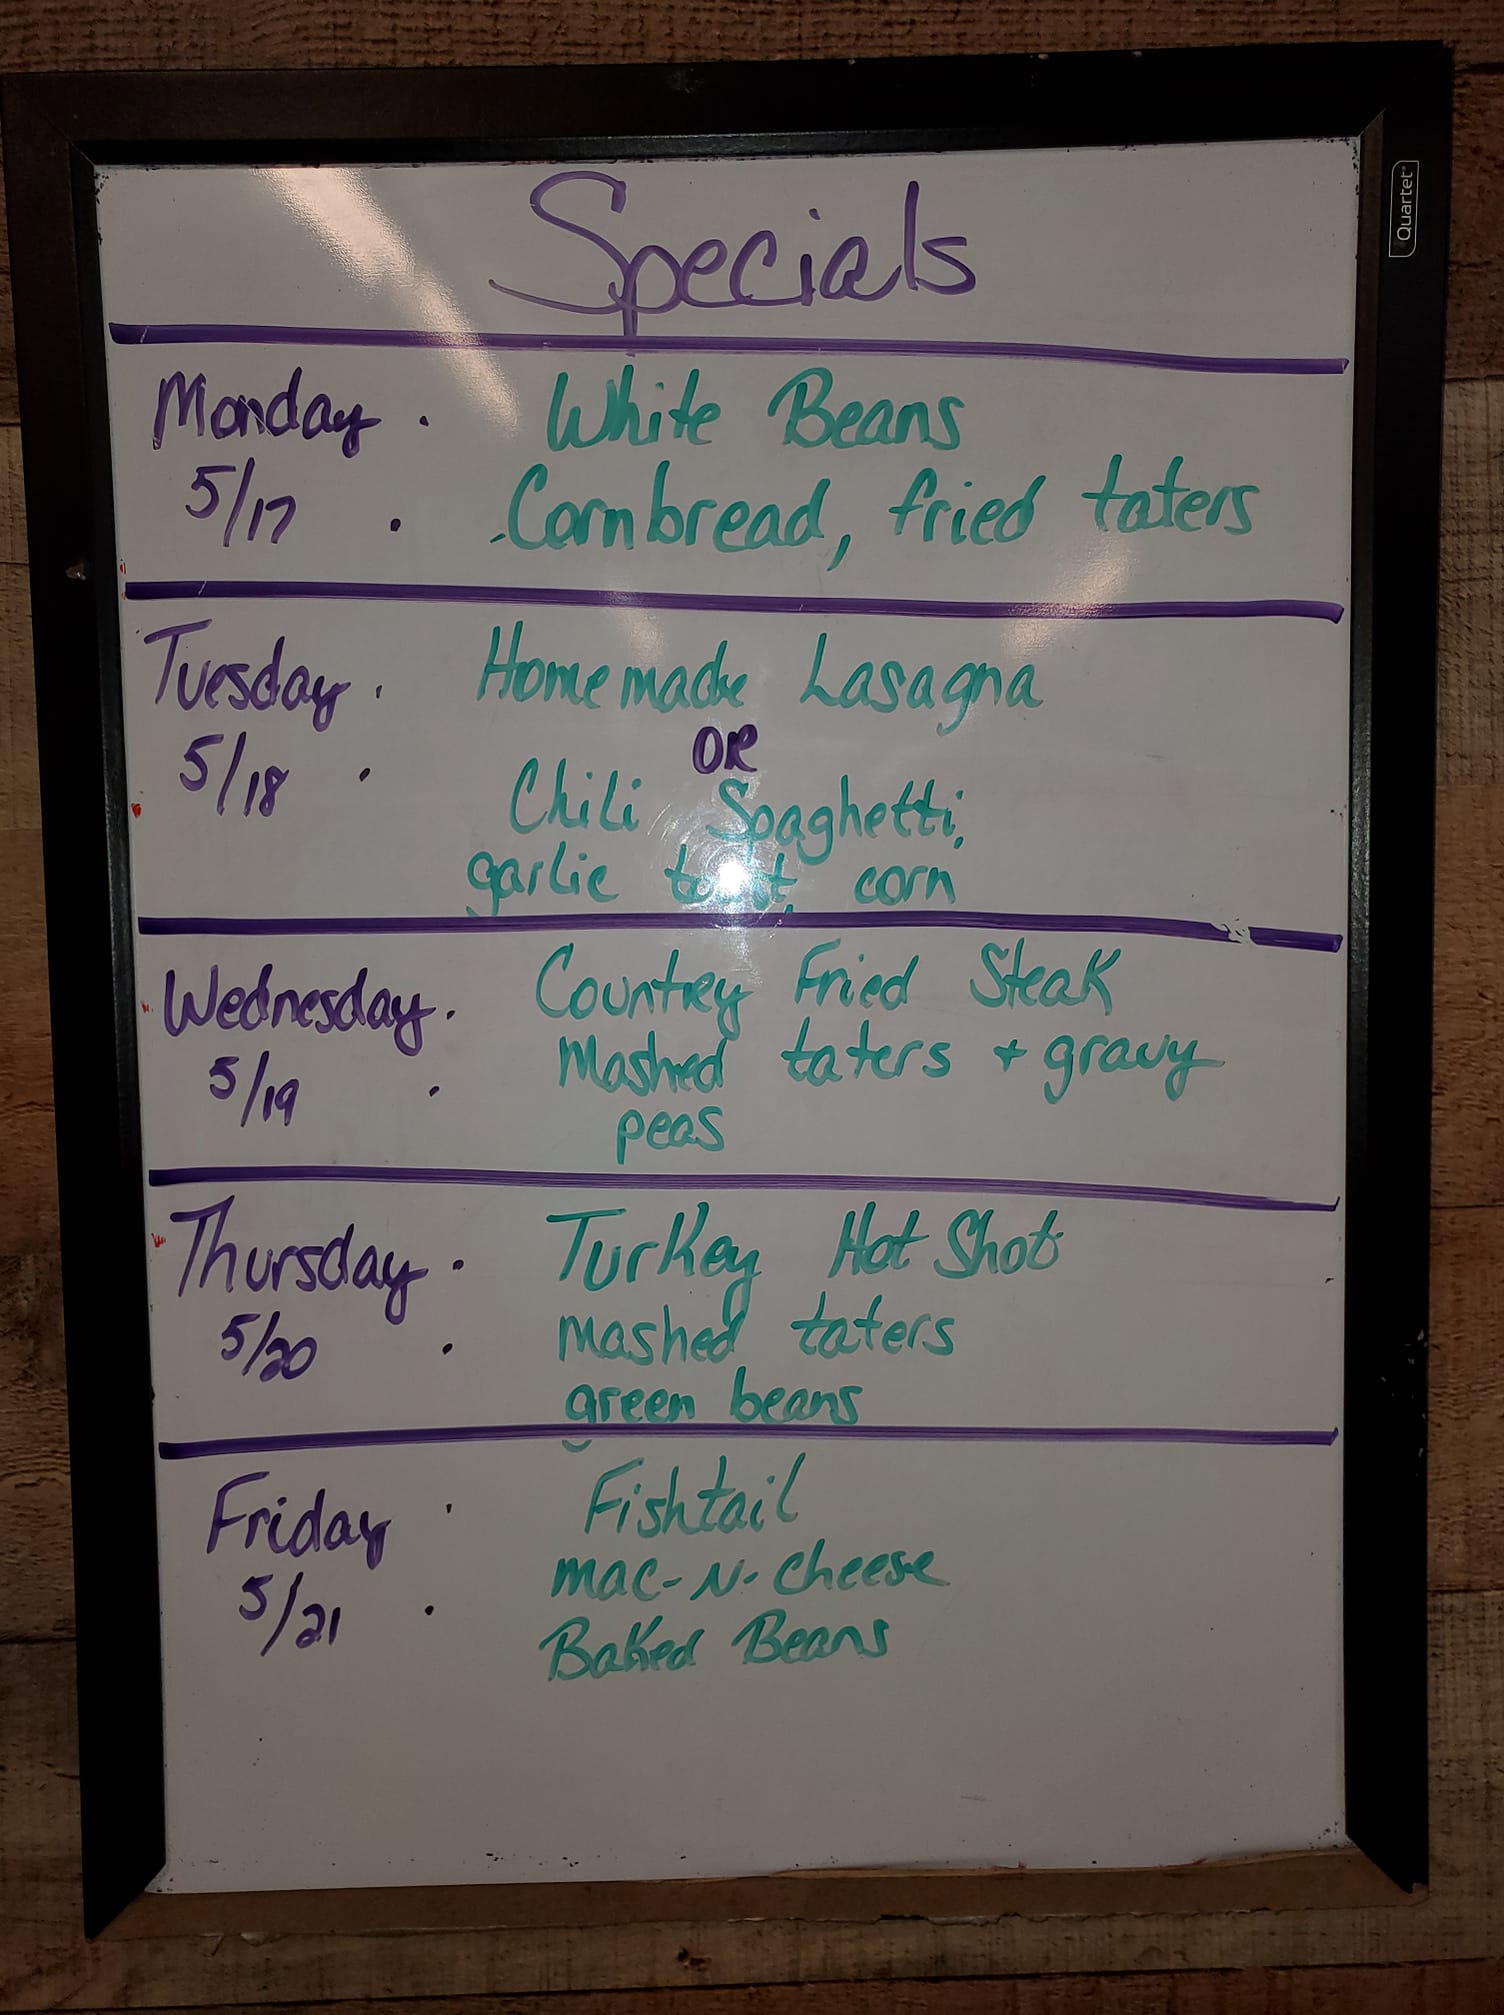 Quartet
Specials
Monday. White Beans
5/17 . Cornbread, fried taters
Tuesday. Homemade Lasagna
OR
5/18 . Chili Spaghetti,
garlic toast, corn
Wednesday. Country Fried Steak
5/19 . Mashed taters + gravy
peas
Thursday. Turkey Hot Shot
5/20 . mashed taters
green beans
Friday . Fishtail
5/21 . mac-N-cheese
Baked Beans